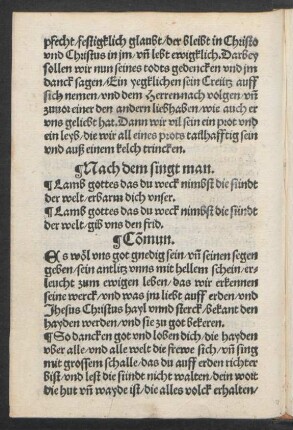 pfecht/festigklich glaubt/der bleibt in Christo
vnd Christus in jm/vn̄ lebt ewigklich. Darbey
sollen wir nun seines todts gedencken vnd jm
danck sagen/Ein yegklichen sein Creütz auff
sich nemen/vnd dem Herren nach volgen vn̄
zuuor einer den andern lieb haben/wie auch er
vns geliebt hat. Dann wir vil sein ein prot vnd
ein leyb/die wir all eines prots tailhafftig sein
vnd auß einem kelch trincken.
¶Nach dem singt man.
¶Lamb gottes das du weck nimbst die sündt
der welt/erbarm dich vnser.
¶Lamb gottes das du weck nimbst die sündt
der welt/gib vns den frid.
¶Comun.
Es wöl vns got gnedig sein/vn̄ seinen segen
geben/sein antlitz vnns mit hellem schein/er-
leucht zum ewigen leben/das wir erkennen
seine werck/vnd was jm liebt auff erden/vnd
Jhesus Christus hayl vnnd sterck/bekant den
hayden werden/vnd sie zu got bekeren.
¶So dancken got vnd loben dich/die hayden
vber alle/vnd alle welt die frewe sich/vn̄ sing
mit grossem schalle/das du auff erden richter
bist/vnd lest die sündt nicht walten/dein wort
die hut vn̄ wayde ist/die alles volck erhalten/